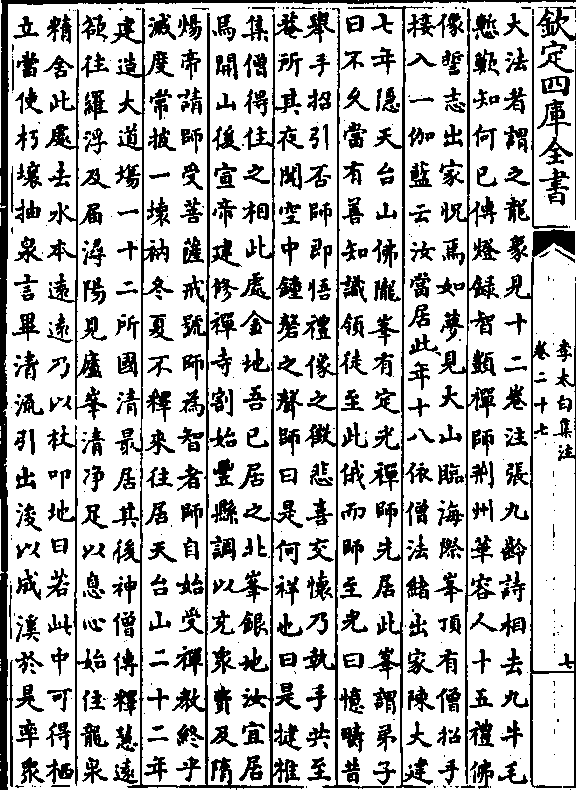 欽定四庫全書
李太白集注
卷二十七
七
大法者謂之龍象見十二卷注張九齡詩相去九牛毛
慙歎知何已傳燈録智顗禪師荆州華容人十五禮佛
像誓志出家怳焉如夢見大山臨海際峯頂有僧招手
接入一伽藍云汝當居此年十八依僧法緒出家陳大建
七年隠天台山佛隴峯有定光禪師先居此峯謂弟子
曰不久當有善知識領徒至此俄而師至光曰憶疇昔
舉手招引否師即悟禮像之徵悲喜交懷乃執手共至
菴所其夜聞空中鐘磬之聲師曰是何祥也曰是揵椎
集僧得住之相此處金地吾已居之北峯銀地汝宜居
焉開山後宣帝建修禪寺割始豐縣調以充衆費及隋
煬帝請師受菩薩戒號師為智者師自始受禪教終乎
滅度常披一壞衲冬夏不釋來往居天台山二十二年
建造大道塲一十二所國清最居其後神僧傳釋慧遠
欲往羅浮及届潯陽見廬峯清浄足以息心始住龍泉
精舍此處去水本遠遠乃以杖叩地曰若此中可得栖
立當使朽壤抽泉言畢清流引出浚以成溪於是率衆